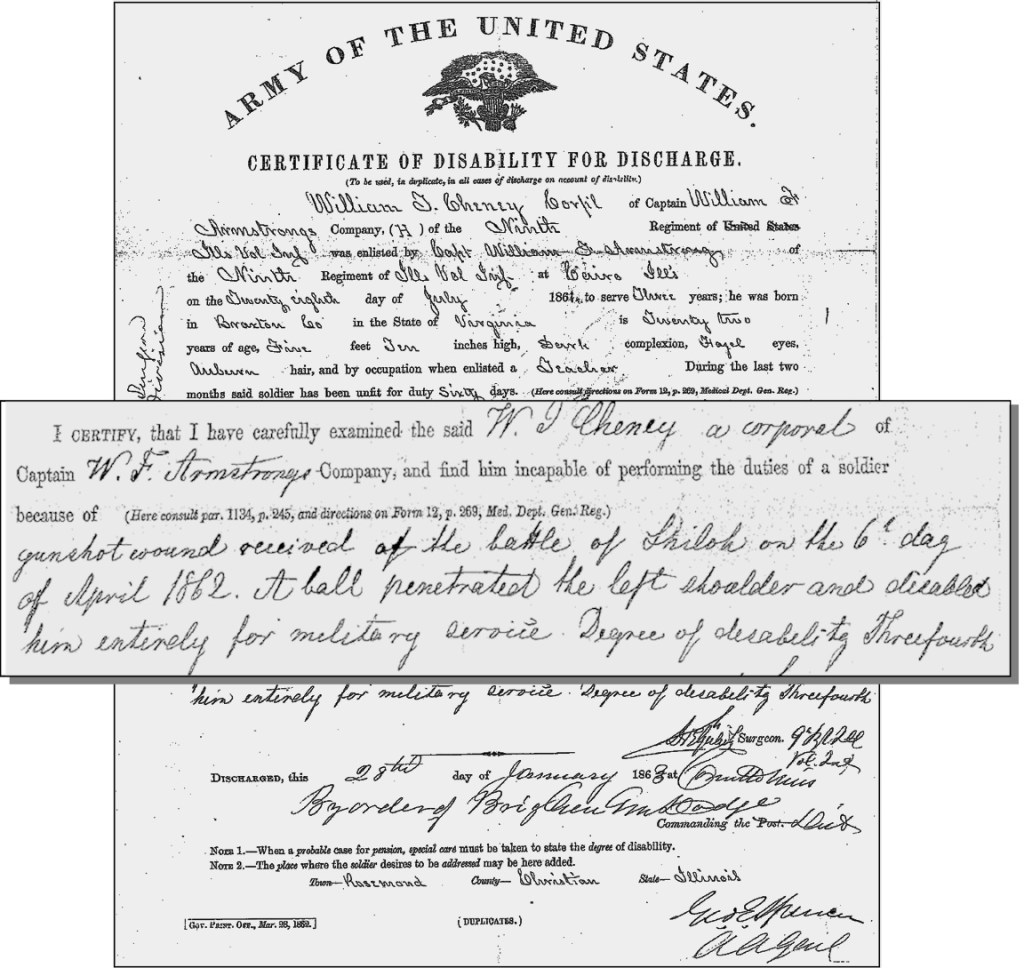 ARMY OF THE UNITED STATES.
CERTIFICATE OF DISABILITY FOR DISCHARGE.
(To be used, in duplicate, in all cases of discharge on account of disability.)
William T. Cheney Corp'l of Captain William F
Armstrongs Company, (H) of the Ninth Regiment of United States
Ills Vol Inf was enlisted by Capt William F Armstrong of
the Ninth Regiment of Ills Vol Inf at Cairo Ills
on the Twenty eighth day of July 1861, to serve Three years; he was born
in Braxton Co in the State of Virginia is Twenty two
years of age, Five feet Ten inches high, Dark complexion, Hazel eyes,
Auburn hair, and by occupation when enlisted a Teacher During the last two
months said soldier has been unfit for duty Sixty days. (Here consult directions on Form 12, p. 269, Medical Dept. Gen. Reg.)
Division
I CERTIFY, that I have carefully examined the said W. T Cheney a corporal of
Captain W. F. Armstrongs Company, and find him incapable of performing the duties of a soldier
because of (Here consult par. 1134, p. 245, and directions on Form 12, p. 269, Med. Dept. Gen. Reg.)
gunshot wound received at the battle of Shiloh on the 6th day
of April 1862. A ball penetrated the left shoulder and disabled
him entirely for military service. Degree of desability Threefourth
him entirely for military service. Degree of desability Threefourth
Surgeon. 9th Ill
Vol. Inf
DISCHARGED, this 28th day of January 1863 at
By order of Brig Gen G M Dodge
Commanding the Post. Dist
NOTE 1.—When a probable case for pension, special care must be taken to state the degree of disability.
NOTE 2.—The place where the soldier desires to be addressed may be here added.
Town—Rosemond County—Christian State—Illinois
[GOV. PRINT. OFF., Mar. 28, 1862.] (DUPLICATES.)
Geo E Spencer
A A Genl